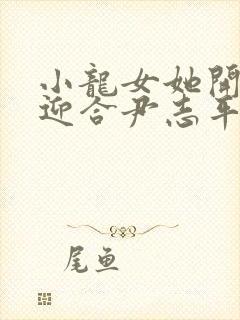 小龍女她開
迎合尹志平
尾鱼